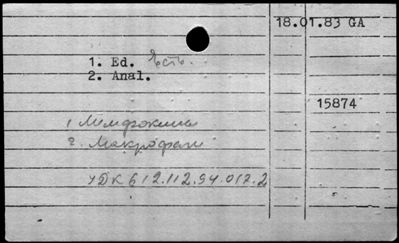 18.01.83 GA
1. Ed. Есть.
2. Anal.
15874
1. Лимфокины
2. Макрофаги
УДК 612.112.94.017.2